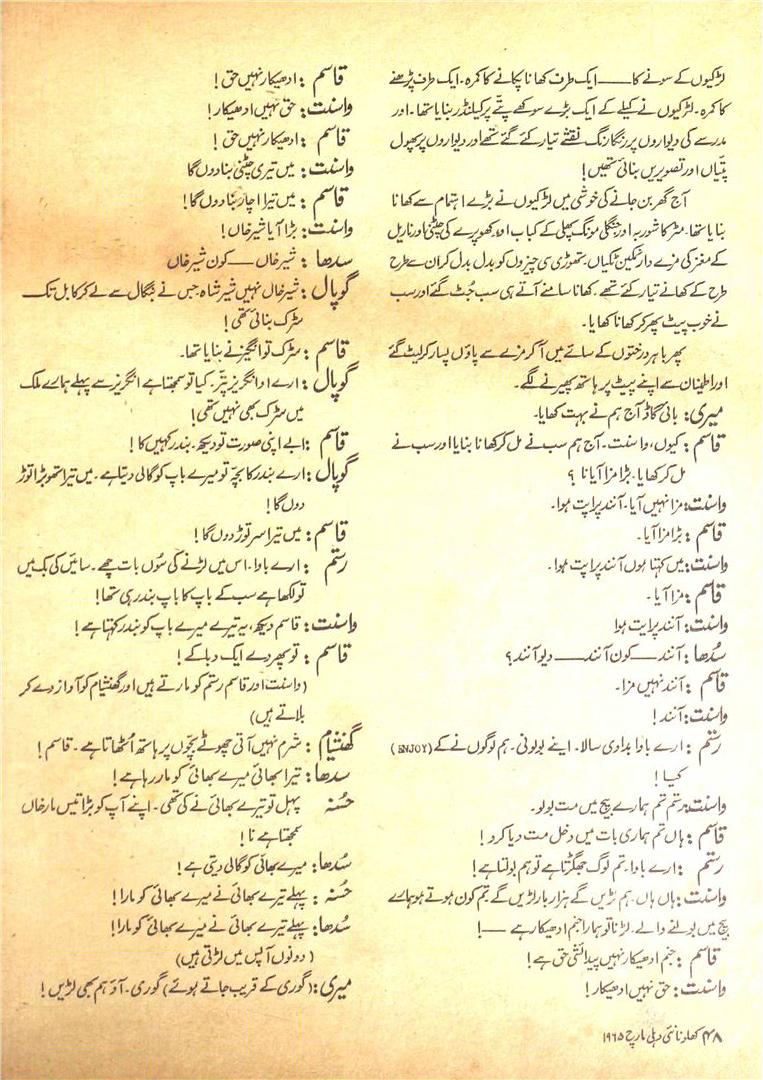 لڑکیوں کے سونے کا —— ایک طرف کھانا پکانے کا کمرہ۔ ایک طرف پڑھنے
کا کمرہ۔ لڑکیوں نے کیلے کے ایک بڑے سوکھے پتّے پر کیلنڈر بنایا تھا۔ اور
مدرسے کی دیواروں پر رنگا رنگ نقشے تیار کئے گئے تھے اور دیواروں پر پھول
پتّیاں اور تصویریں بنائی تھیں!
آج گھر بن جانے کی خوشی میں لڑکیوں نے بڑے اہتمام سے کھانا
بنایا تھا۔ مٹر کا شوربہ اور جنگلی مونگ پھلی کے کباب اور کھوپرے کی چٹنی اور ناریل
کے مغز کی مزے دار نمکین ٹکیاں۔ تھوڑی سی چیزوں کو بدل بدل کر ان سے طرح
طرح کے کھانے تیار کئے تھے۔ کھانا سامنے آتے ہی سب جُٹ گئے اور سب
نے خوب پیٹ بھر کر کھانا کھایا۔
پھر باہر درختوں کے سائے میں آ کر مزے سے پاؤں پسار کر لیٹ گئے
اور اطمینان سے اپنے پیٹ پر ہاتھ پھیرنے لگے۔
میری: بائی گاڈ آج ہم نے بہت کھایا۔
قاسم: کیوں، واسنت۔ آج ہم سب نے مل کر کھانا بنایا اور سب نے
مل کر کھایا۔ بڑا مزا آیا نا؟
واسنت: مزا نہیں آیا۔ آنند پراپت ہوا۔
قاسم: بڑا مزا آیا۔
واسنت: میں کہتا ہوں آنند پراپت ہوا۔
قاسم: مزا آیا۔
واسنت: آنند پراپت ہوا
سُدھا: آنند —— کون آنند —— دیو آنند؟
قاسم: آنند نہیں مزا۔
واسنت: آنند!
رستم: ارے باوا بداوی سالا۔ اینے بولونی۔ ہم لوگوں نے کے (ENJOY)
کیا!
واسنت: رستم تم ہمارے بیچ میں مت بولو۔
قاسم: ہاں تم ہماری بات میں دخل مت دیا کرو!
رستم: ارے باوا۔ تم لوگ جھگڑتا ہے تو ہم بولتا ہے!
واسنت: ہاں ہاں۔ ہم لڑیں گے ہزار بار لڑیں گے۔ تم کون ہوتے ہو ہمارے
بیچ میں بولنے والے۔ لڑنا تو ہمارا جنم ادھیکار ہے ——!
قاسم: جنم ادھیکار نہیں پیدائشی حق ہے!
واسنت: حق نہیں ادھیکار!
قاسم: ادھیکار نہیں حق!
واسنت: حق نہیں ادھیکار!
قاسم: ادھیکار نہیں حق!
واسنت: میں تیری چٹنی بنا دوں گا
قاسم: میں تیرا اچار بنا دوں گا!
واسنت: بڑا آیا شیر خاں!
سدھا: شیر خاں —— کون شیر خاں
گوپال: شیر خاں نہیں شیر شاہ۔ جس نے بنگال سے لے کر کابل تک
سڑک بنائی تھی!
قاسم: سڑک تو انگریز نے بنایا تھا۔
گوپال: ارے او انگریز پتّر۔ کیا تو سمجھتا ہے انگریز سے پہلے ہمارے ملک
میں سڑک بھی نہیں تھی!
قاسم: ابے اپنی صورت تو دیکھ۔ بندر کہیں کا!
گوپال: ارے بندر کا بچّہ تو میرے باپ کو گالی دیتا ہے۔ میں تیرا تھوبڑا توڑ
دوں گا!
قاسم: میں تیرا سر توڑ دوں گا!
رستم: ارے باوا۔ اس میں لڑنے کی سُوں بات چھے۔ سائیں کی بک میں
تو لکھا ہے سب کے باپ کا باپ بندر ہی تھا!
واسنت: قاسم دیکھ، یہ تیرے میرے باپ کو بندر کہتا ہے!
قاسم: تو پھر دے ایک دبا کے!
(واسنت اور قاسم رستم کو مارتے ہیں اور گھنشیام کو آواز دے کر
بلاتے ہیں)
گھنشیام: شرم نہیں آتی چھوٹے بچّوں پر ہاتھ اُٹھاتا ہے۔ قاسم!
سدھا: تیرا بھائی میرے بھائی کو مار رہا ہے!
حُسنہ پہل تو تیرے بھائی نے کی تھی۔ اپنے آپ کو بڑا تیس مار خاں
سمجھتا ہے نا!
سُدھا: میرے بھائی کو گالی دیتی ہے!
حُسنہ: پہلے تیرے بھائی نے میرے بھائی کو مارا!
سُدھا: پہلے تیرے بھائی نے میرے بھائی کو مارا!
(دونوں آپس میں لڑتی ہیں)
میری: (گوری کے قریب جاتے ہوئے) گوری۔ آؤ ہم بھی لڑیں!
۴۸ کھلونا نئی دہلی مارچ ۱۹۶۵